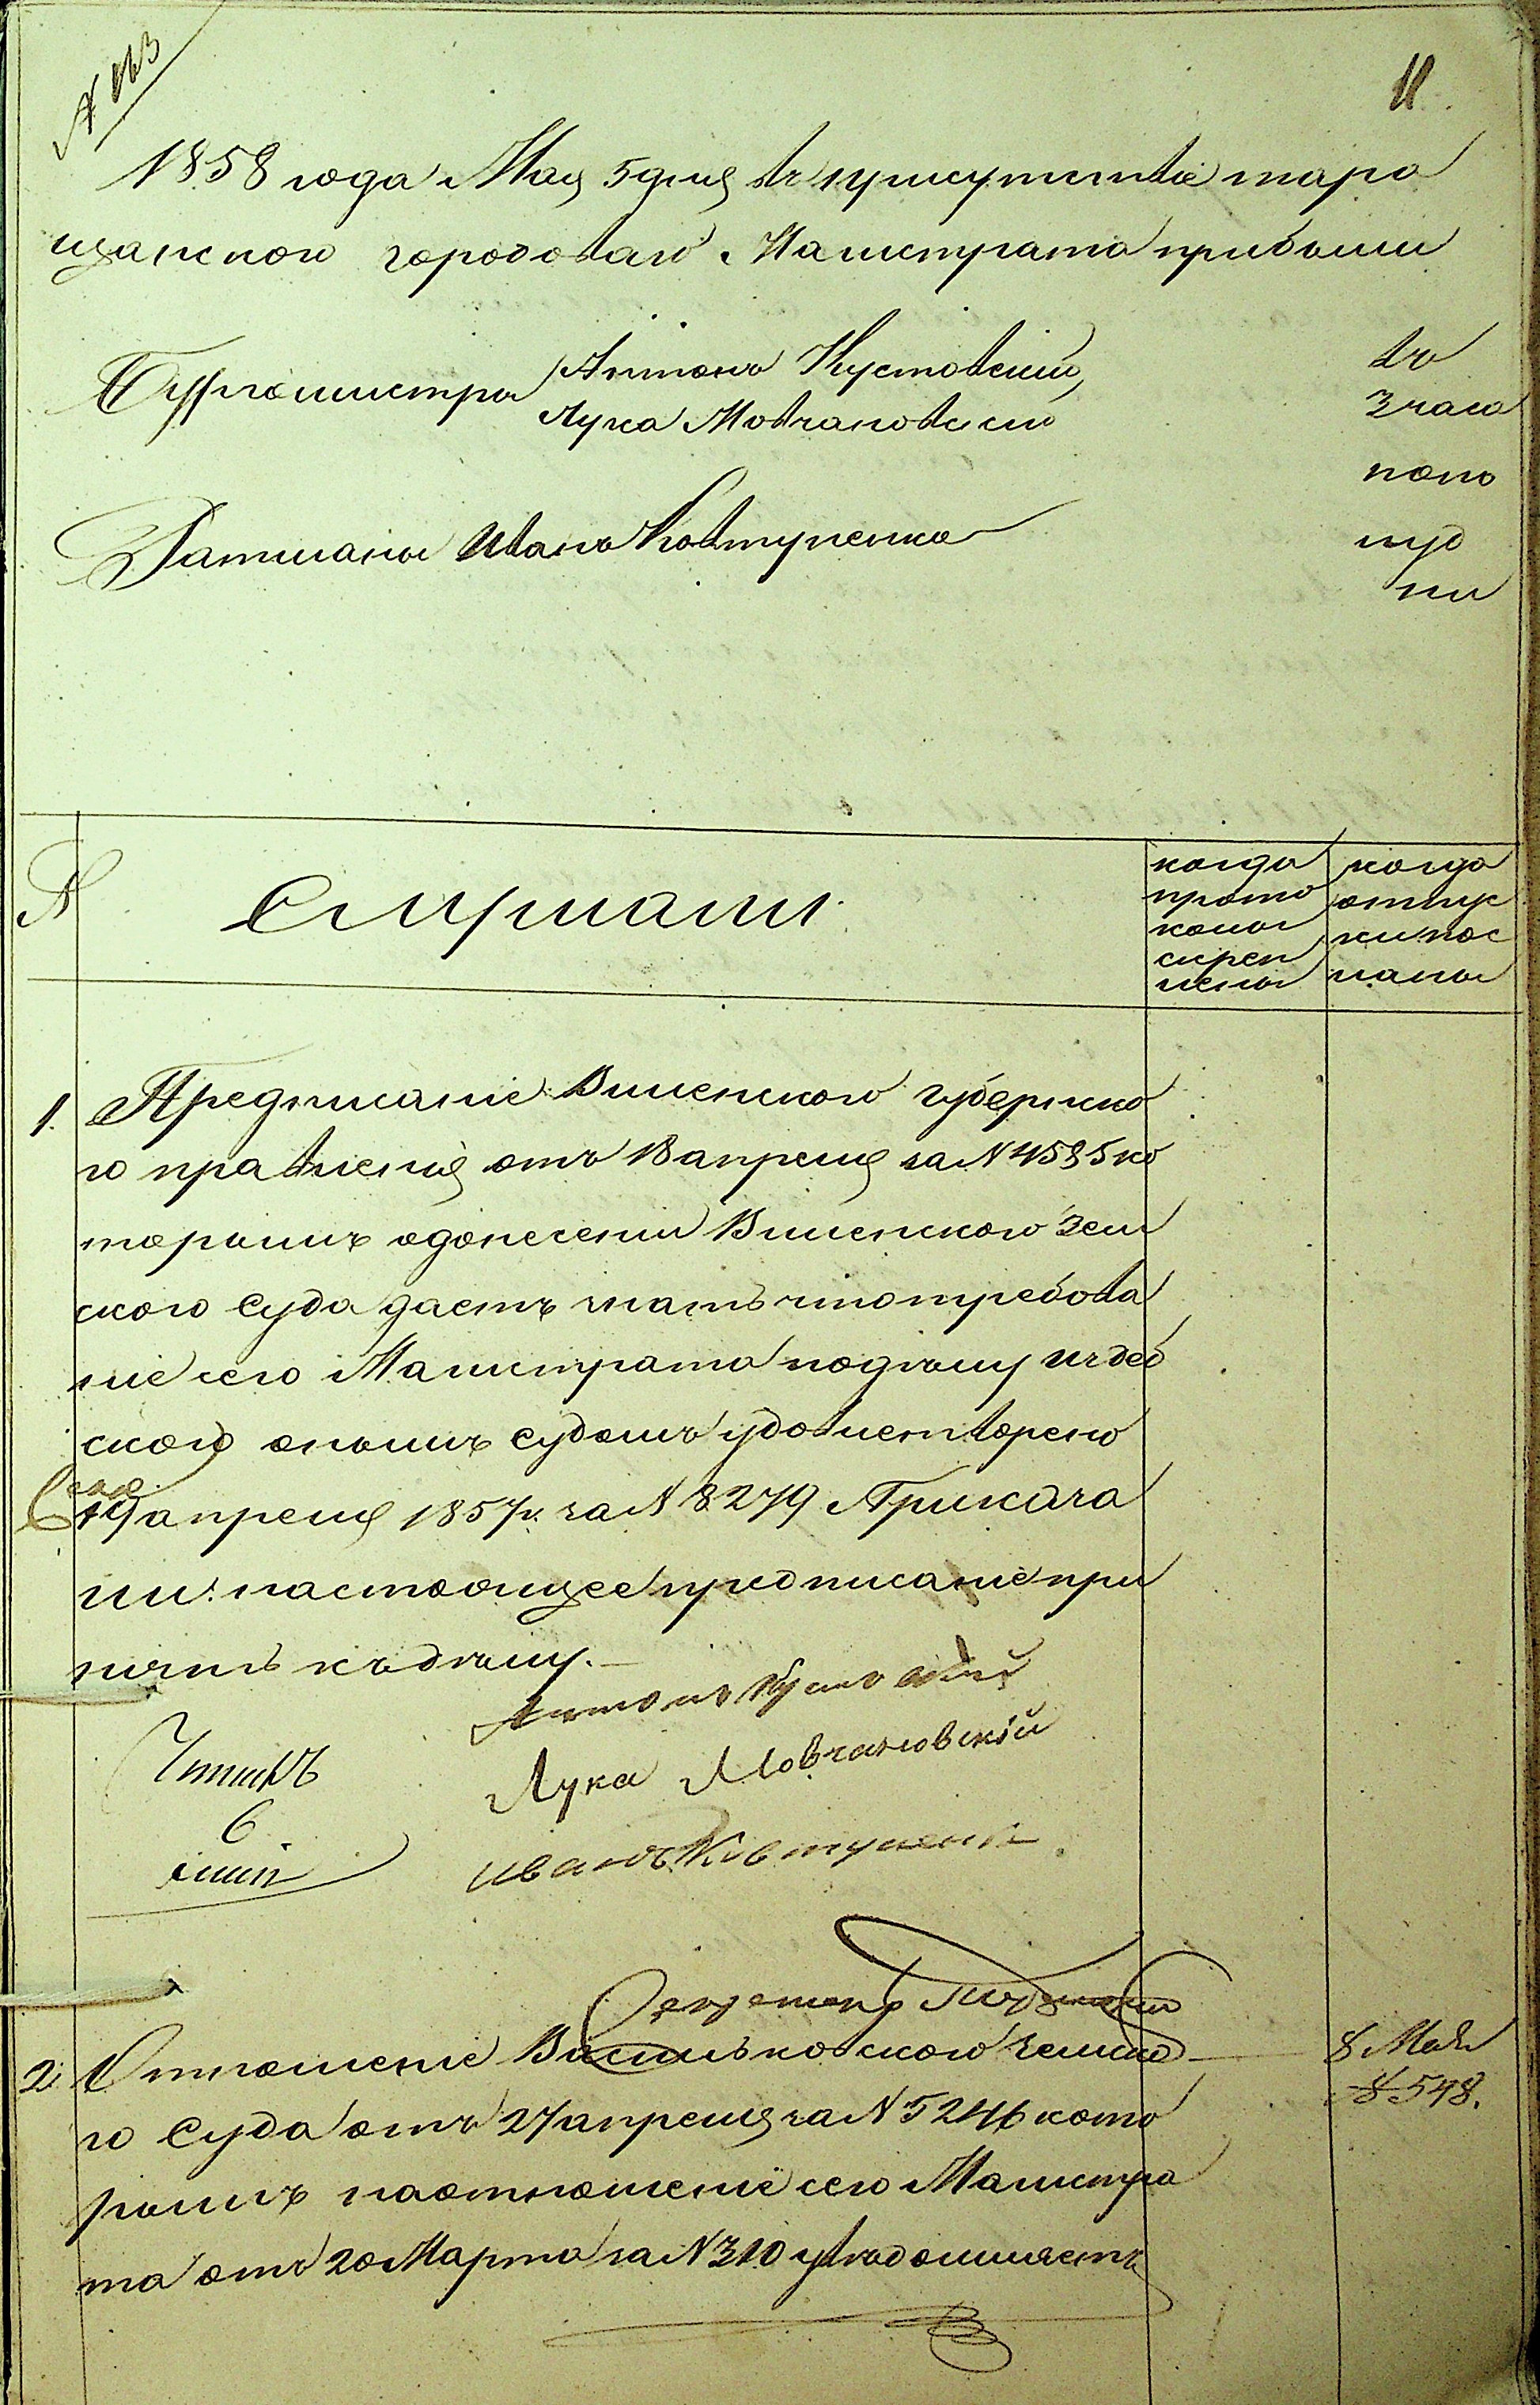 № 113
11
1858 года Мая 5 дня въ присутствіе тара
щанского городоваго Магистрата прибыли
Бургомистры Антонъ Кустовскій,
Лука Мовчановскій
Ратманы Иванъ Ковтуненко
въ
3 часа
попо
луд
ни
№
Слушали:
когда
прото
колы
скреп
лены
когда
отпус
ки пос
ланы
1. Предписаніе Виленского губернско
го правленія отъ 18 апреля за N 4585 ко
торымъ о донесении Виленского Зем
ского Суда даетъ знать что требова
ніе сего Магистрата по делу
ского онымъ Судомъ удовлетворено
19 апреля 1857 г. за N 8279 Приказа
ли: настоящее предписаніе при
нять къ делу.—
Антонъ Кустовскій
Лука Мовчановскій
Иванъ Ковтуненко
Читалъ
6
Секретарь
2. Отношеніе Васильковского Земско
го Суда отъ 27 апреля за N 5246 кото
рымъ на отношеніе сего Магистра
та отъ 20 Марта за N 310 уведомляетъ
8 Мая
№ 548.